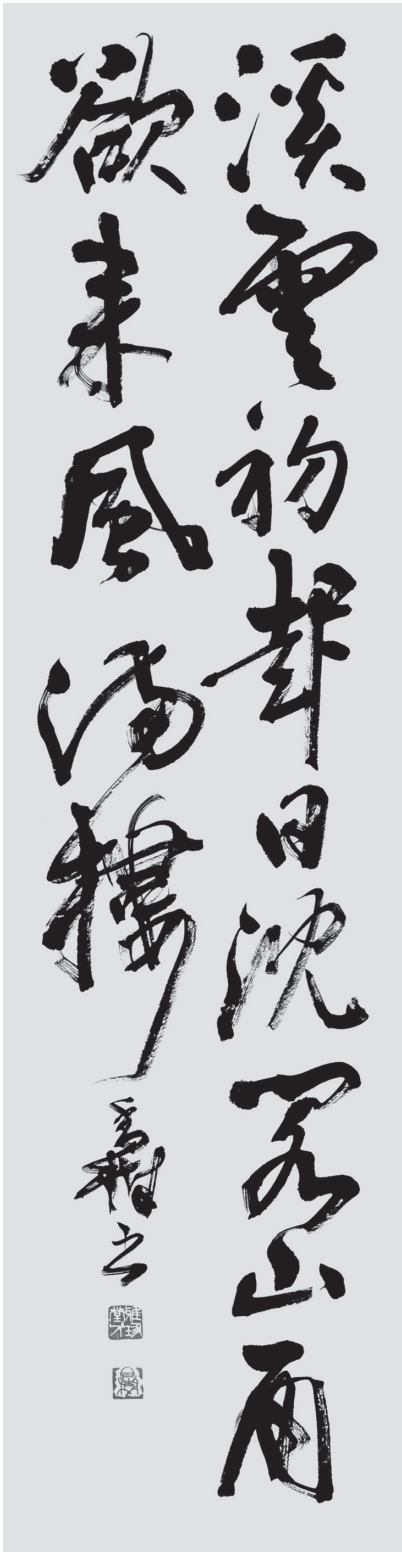 溪雲初起日沈閣山雨
欲来風滿樓